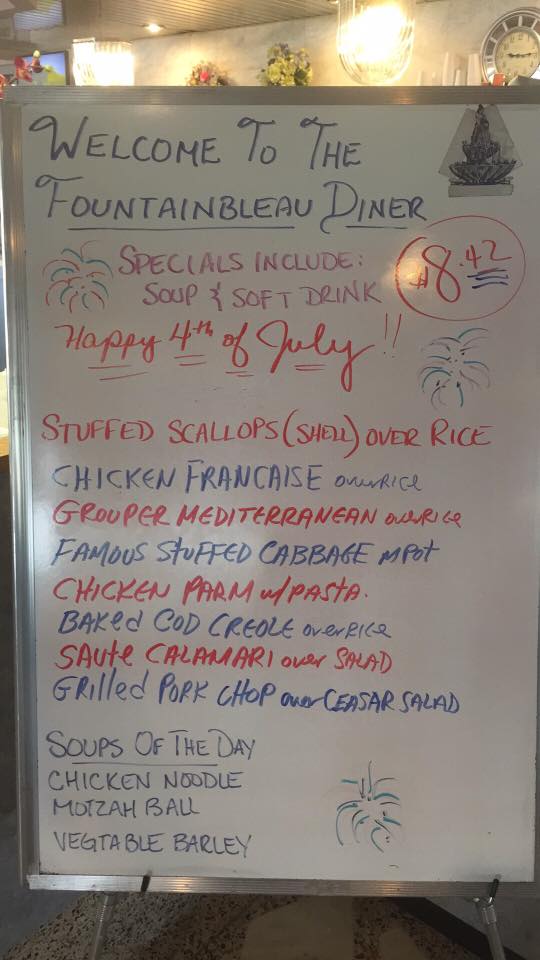 WELCOME TO THE
FOUNTAINBLEAU DINER
SPECIALS INCLUDE:
SOUP & SOFT DRINK
$8.42
Happy 4th of July!!
STUFFED SCALLOPS (SHELL) OVER RICE
CHICKEN FRANCAISE over RICE
GROUPER MEDITERRANEAN over RICE
FAMOUS STUFFED CABBAGE MPot
CHICKEN PARM w/PASTA.
BAKed COD CREOLE over RICE
SAUte CALAMARI over SALAD
GRIlled PORK CHOP over CEASAR SALAD
SOUPS OF THE DAY
CHICKEN NOODLE
MOTZAH BALL
VEGTABLE BARLEY